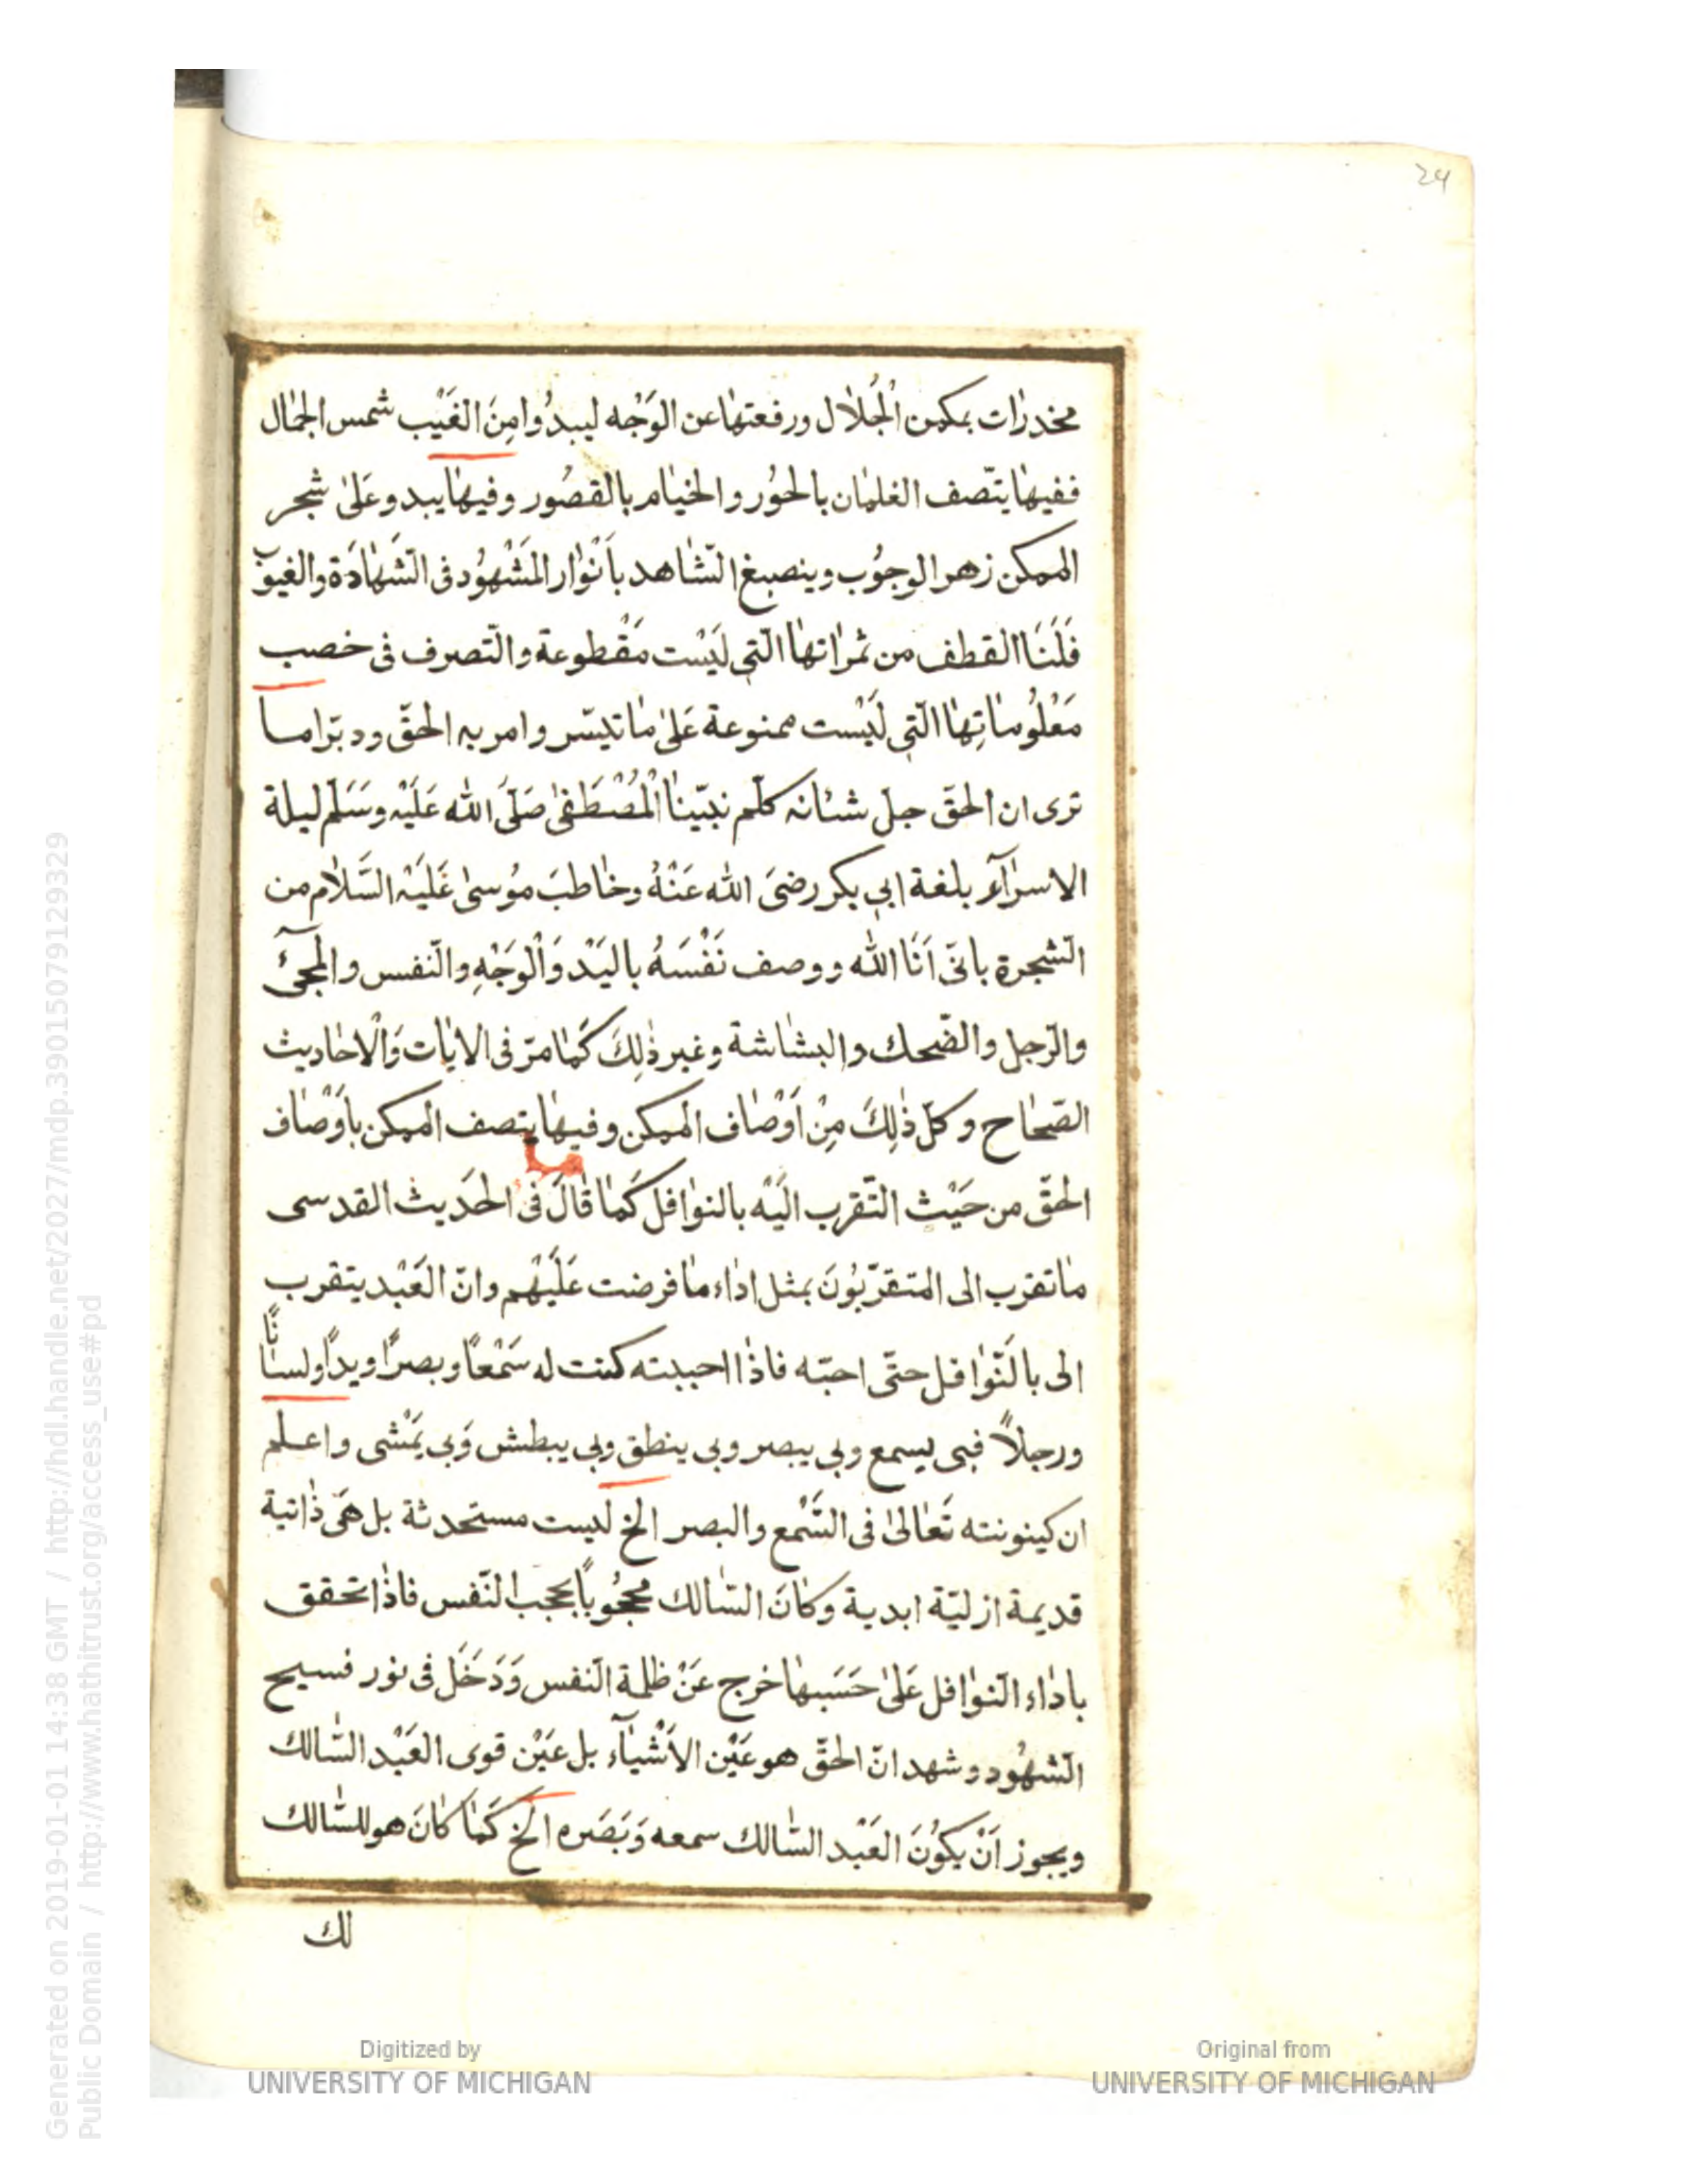 24
مخدرات بمكمن الْجُلال ورفعتها عن الوَجْه ليبدُوا مِنَ الغَيْب شمس الجمال
ففيها يتّصف الغلمان بالحوُر والخيام بالقصُور وفيها يبدو عَلىٰ شجر
الممكن زهر الوجوُب وينصبغ الشّاهد باَنْوار المَشْهوُد فى الشّهَادَة والغيوب
فَلَنَا القطف من ثمراتها الّتى لَيْست مَقْطوعة والتّصرف فى خصب
مَعْلُوماتِها الّتى لَيْست ممنوعة عَلىٰ ما تيسّر وامر به الحقّ ودبّر اما
ترى ان الحقّ جلّ شئانه كلّم نبيّنا الْمُصْطَفىٰ صَلّىَ الله عَلَيْه وسَلّم ليلة
الاسرآء بلغة ابى بكر رضىَ الله عَنْهُ وخاطبَ موُسىٰ عَليَه السَّلام من
الشّجرة بانّى اَنَا الله ووصف نَفْسَهُ باليَدْ وَالْوَجْهِ والنّفس والمجئ
والرّجل والضّحك والبشاشة وغير ذٰلِكَ كَما مرّ فى الايات وَالْاحاديث
الصّحاح وكلّ ذٰلِكَ مِنْ اَوْصاف الممكن وفيها يتصف الممكن باَوْصاف
الحقّ من حَيْث التّقرب الَيْه بالنوافل كَما قالَ فى الحَديث القدسى
ما تقرب الى المتقرّبُونَ بمثل اداء ما فرضت عَلَيْهم وانّ العَبْد يتقرب
الى بالَنّوافل حتّى احبّه فاذا احببته كنت له سَمْعاً وبصراً ويداً ولساناً
ورجلاً فبى يسمع وبى يبصر وبى ينطق وبى يبطش وَبى يَمْشى واعلم
ان كينونته تَعالىٰ فى السَّمع والبصر الخ ليست مستحدثة بل هىَ ذاتية
قديمة ازليّة ابدية وكانَ السّالك محجُوباً بحجب النّفس فاذا تحقق
باداء النّوافل عَلىٰ حَسَبها خرج عَنْ ظلمة النّفس وَدَخَل فى نور فسيح
الشّهُود وشهد انّ الحقّ هو عَيْن الاَشْيآء بل عَيْن قوى العَبْد السّالك
ويجوز اَنْ يكوُنَ العَبْد السّالك سمعه وَبَصَره الخ كَما كانَ هو للسّالك
لك
Generated on 2019-01-01 14:38 GMT / http://hdl.handle.net/2027/mdp.39015079129329
Public Domain / http://www.hathitrust.org/access_use#pd
Digitized by
UNIVERSITY OF MICHIGAN
Original from
UNIVERSITY OF MICHIGAN